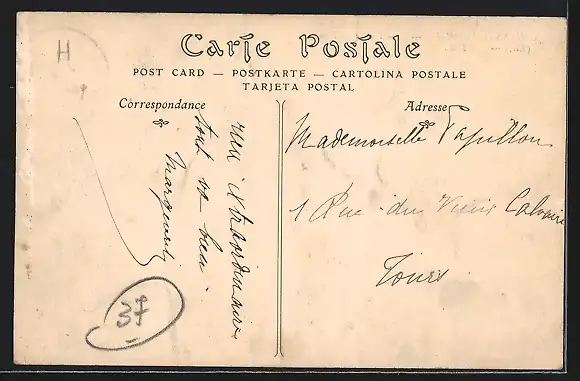 H
Carte Postale
POST CARD — POSTKARTE — CARTOLINA POSTALE
TARJETA POSTAL
Correspondance
Adresse
rien extraordinaire
tout va bien.
Marguerite
37
Mademoiselle Papillon
1 Rue du Vieux Calvaire
Tours